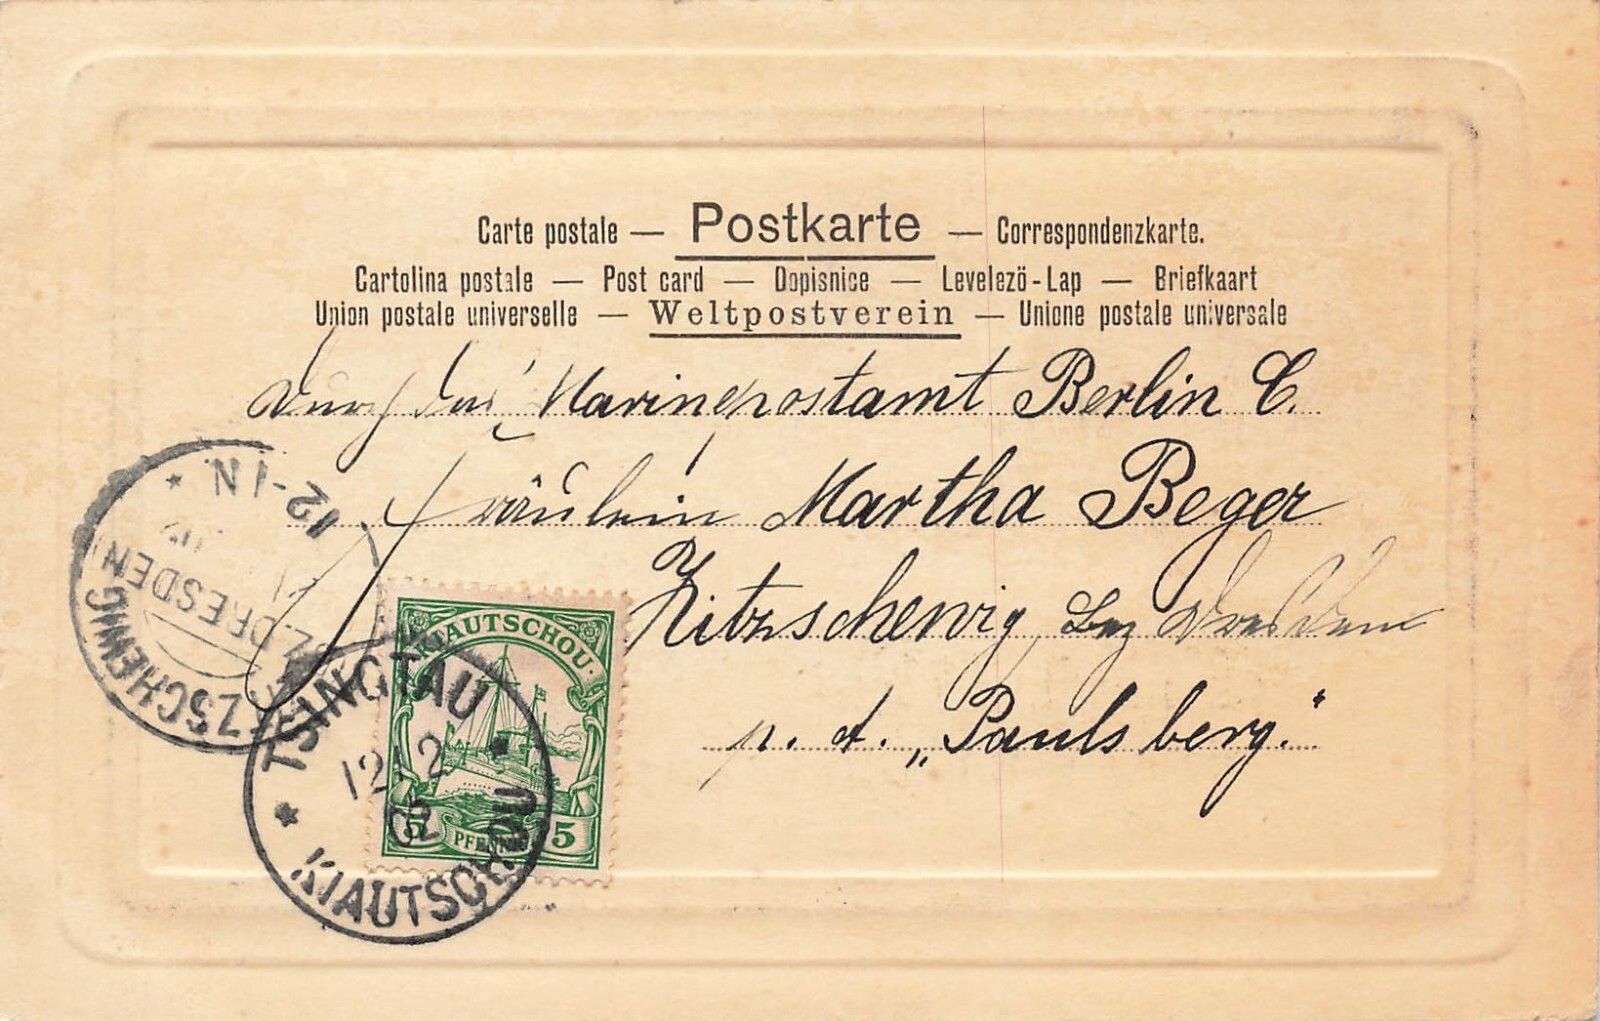 Carte postale — Postkarte — Correspondenzkarte.
Cartolina postale — Post card — Dopisnice — Levelezö-Lap — Briefkaart
Union postale universelle — Weltpostverein — Unione postale universale
Durch das Marinepostamt Berlin C.
Fräulein Martha Beger
Kitzschewig, Bez Dresden
p. A. „Paulsberg."
12-1N
ZSCHEWIG
DRESDEN
KIAUTSCHOU
5 PFENNIG 5
TSINGTAU
12 2
02
KIAUTSCHOU